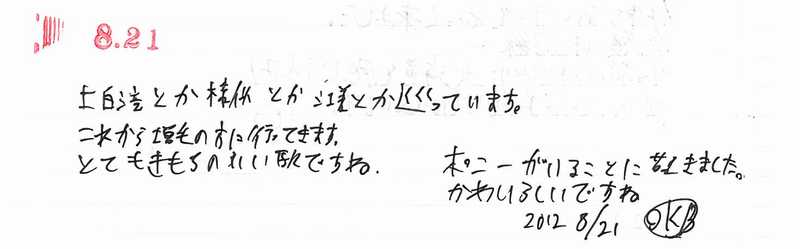 8.21
とか様似とか とか巡っています。
これから増毛の方に行ってきます。
とてもきもちのいい駅ですね.
ポニーがいることに驚きました。
かわいらしいですね
2012 8/21 OKB